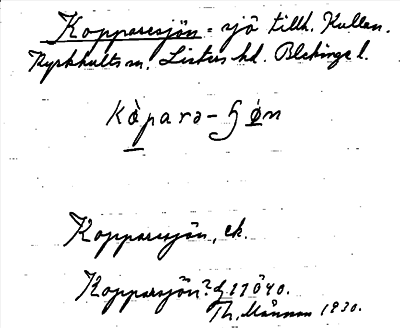 Kopparesjön - sjö tillh. Kullen.
Kyrkhults sn. Listers hd. Blekinge l.
Kòparə-ʃön
Kopparesjön, ek.
Kopparsjön?
Th. Månsson 1930.